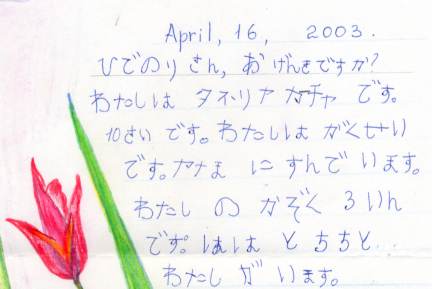 April, 16, 2003.
ひでのりさん, おげんきですか?
わたしは タネリヤ カチャ です。
10さい です。わたしは がくせい
です。ヤナま に すんで います。
わたし の かぞく 3 いん
です。はは と ちちと
わたし が います。